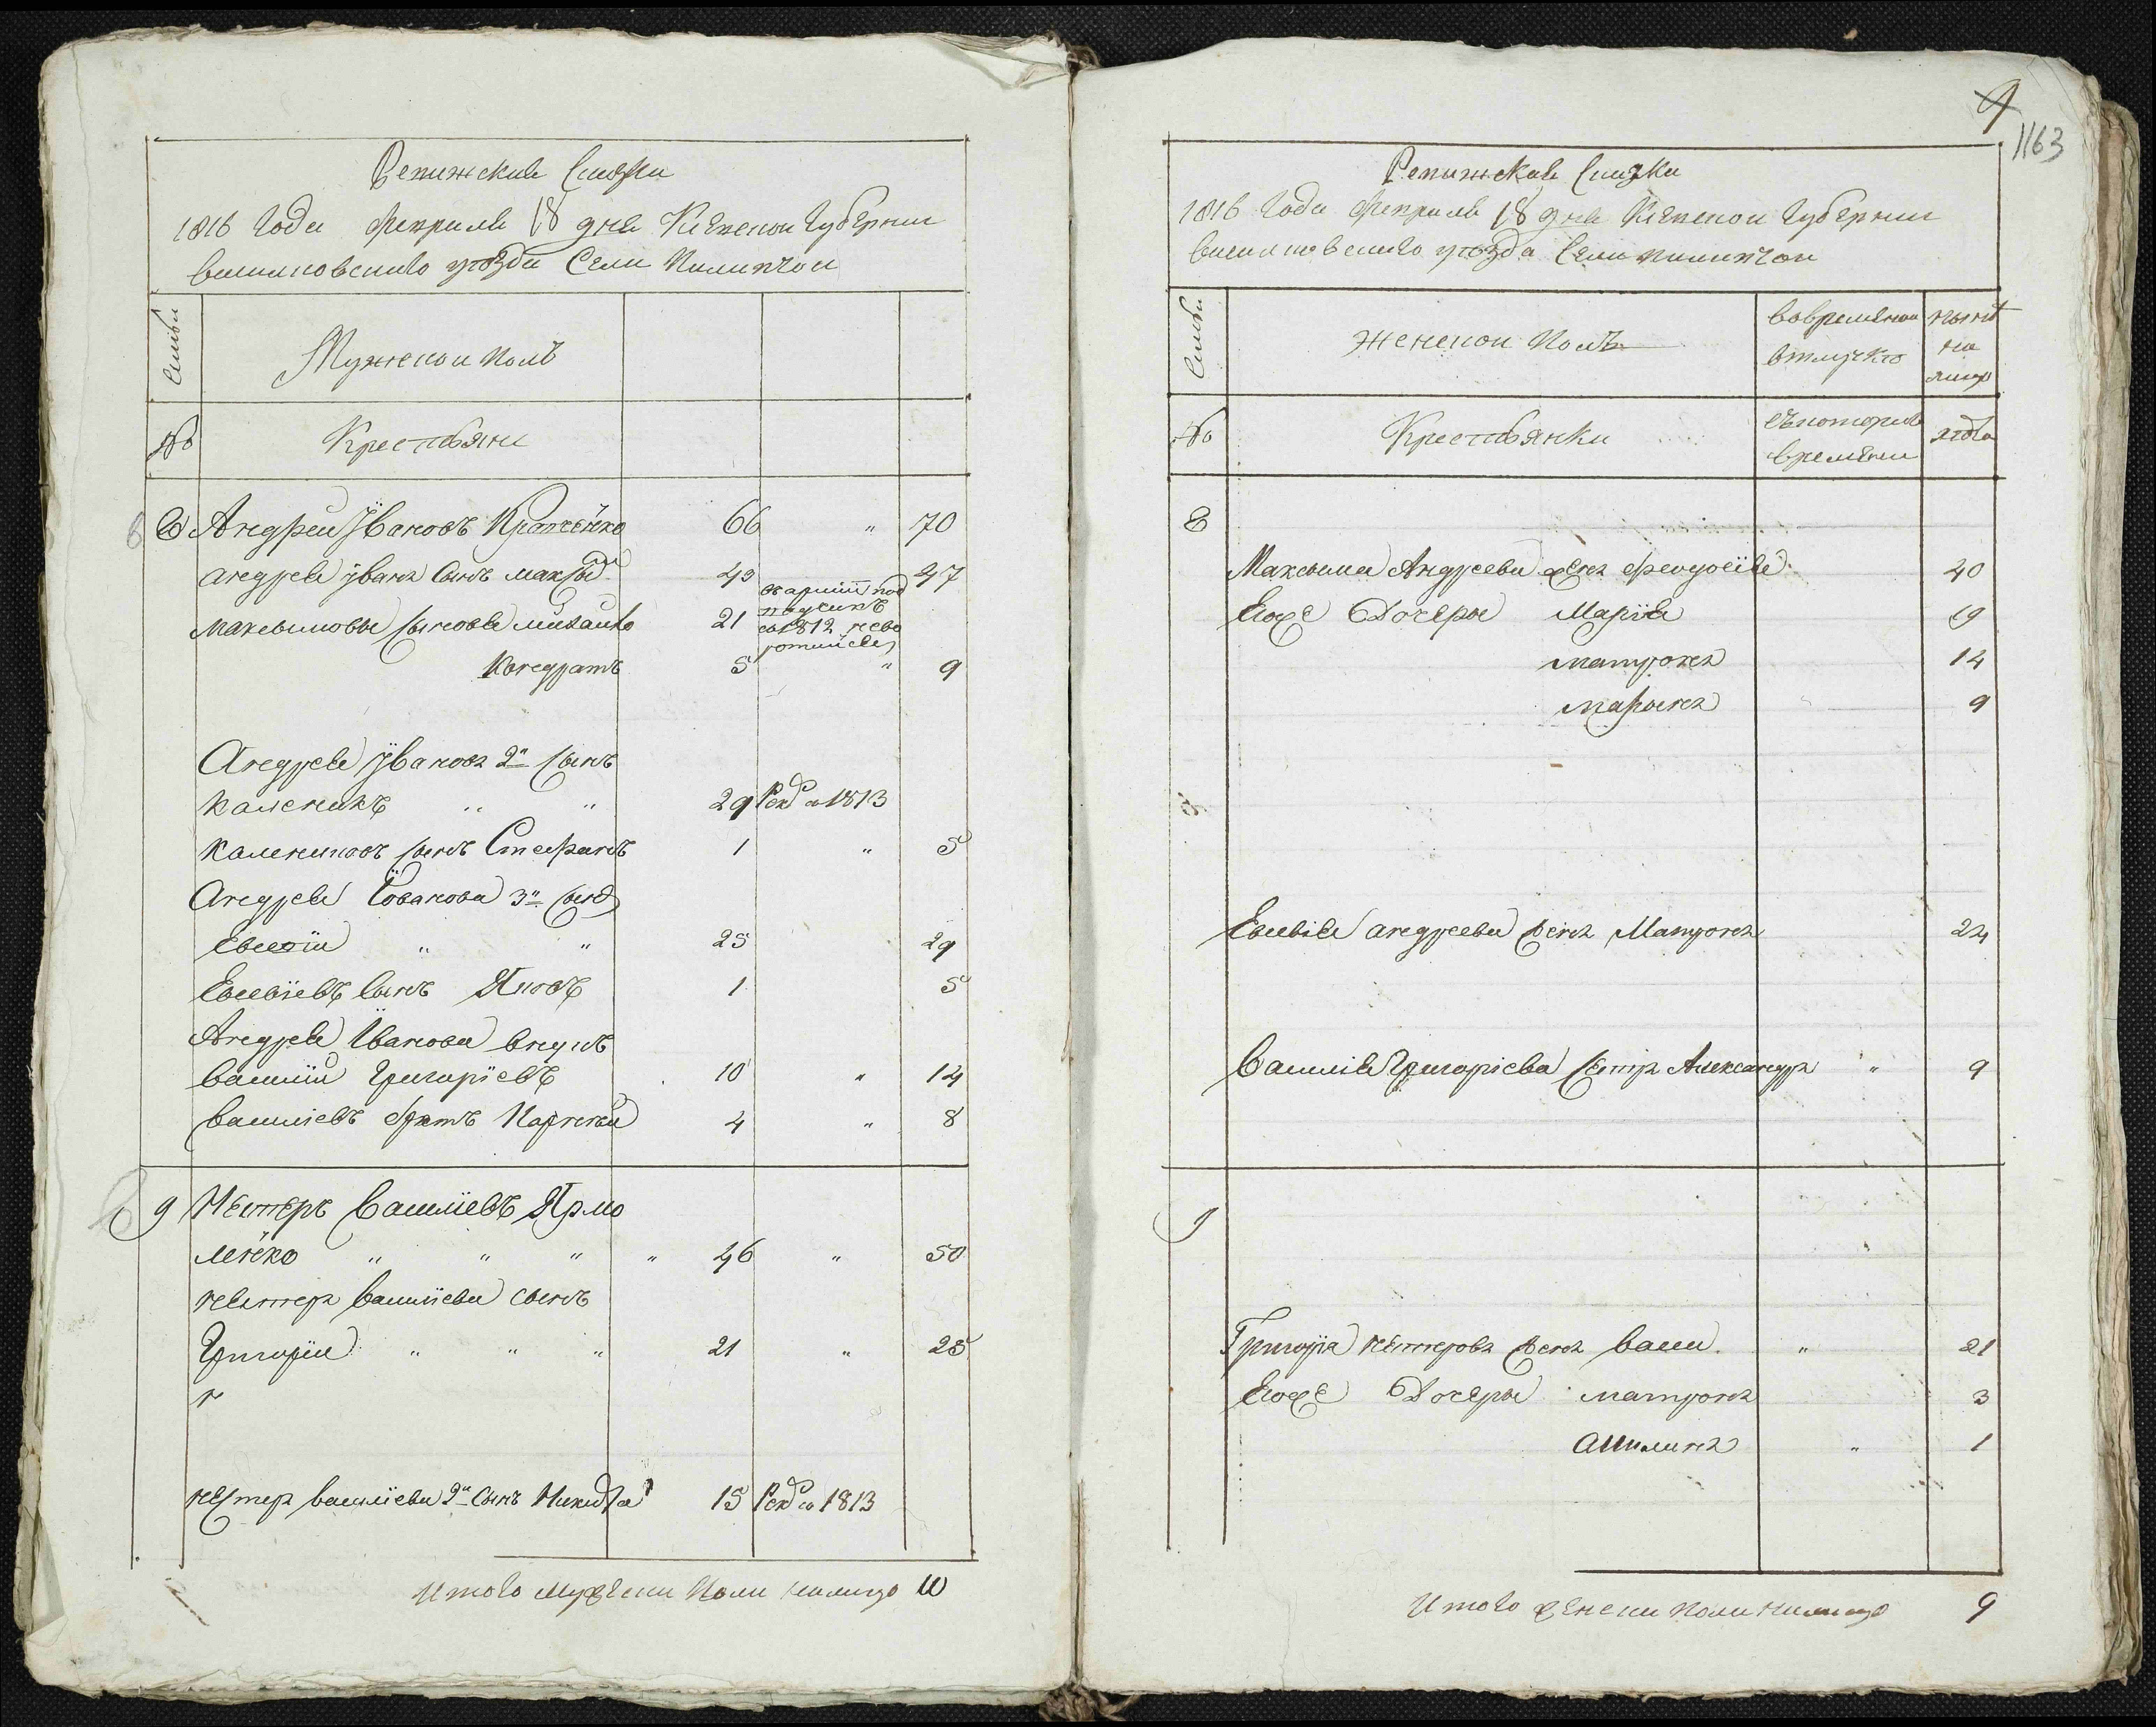 Ревижская Сказка
1816 Года Февраля 18 дня Киевской Губернии
василковского уезда Села Пилипчой
Семьи
Мужеской полъ
№
Крестьяне
8 Андрей Ивановъ 66 " 70
Андрея Ивана Сынъ Максым 43 47
Максымовы сыновья михайло 21
в 1812 году
Кондратъ 5 " 9
Андрея Иванова 2й сынъ
каленикъ " " 29 Рекр в 1813
калениковъ сынъ Стефанъ 1 " 5
Андрея Иованова 3й сынъ
Евсеій " " 25 29
Евсевіевъ Сынъ Яковъ 1 5
Андрея Иванова внукъ
василій Григоріевъ 10 " 14
василіевъ братъ Парфеній 4 " 8
9 Нестеръ Василіевъ Ярмо
ленко " " " " 46 " 50
нестера василіева сынъ
Григорій " " " 21 " 25
н
нестера василіева 2й сынъ Никита 15 Рекр в 1813
Итого Мужеска Пола налицо 10
9
1163
Ревижская Сказка
1816 Года Февраля 18 дня Киевской Губернии
василковского уезда Села пилипчой
Семьи
Женской Полъ
вовременной
отлучке
ныне
на
лицо
№
Крестьянки
съ которого
времени
лета
8
Максыма Андреева жена Феодосія 40
Егоже Дочеры Марія 19
матрона 14
марына 9
Евсевія андреева жена Матрона 24
Василія Григоріева сестра Александра " 9
9
Григорія нестерова жена васи. " 21
Егоже Дочеры матрона 3
акилина " 1
Итого женска пола налицо 9